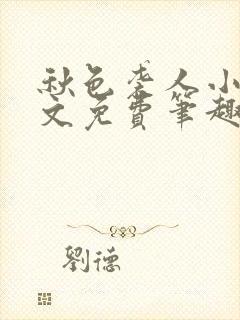 秋色袭人小
文免費筆趣
劉德